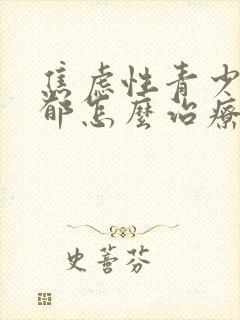 焦虑性青少
都怎麼治療
史蕾芬